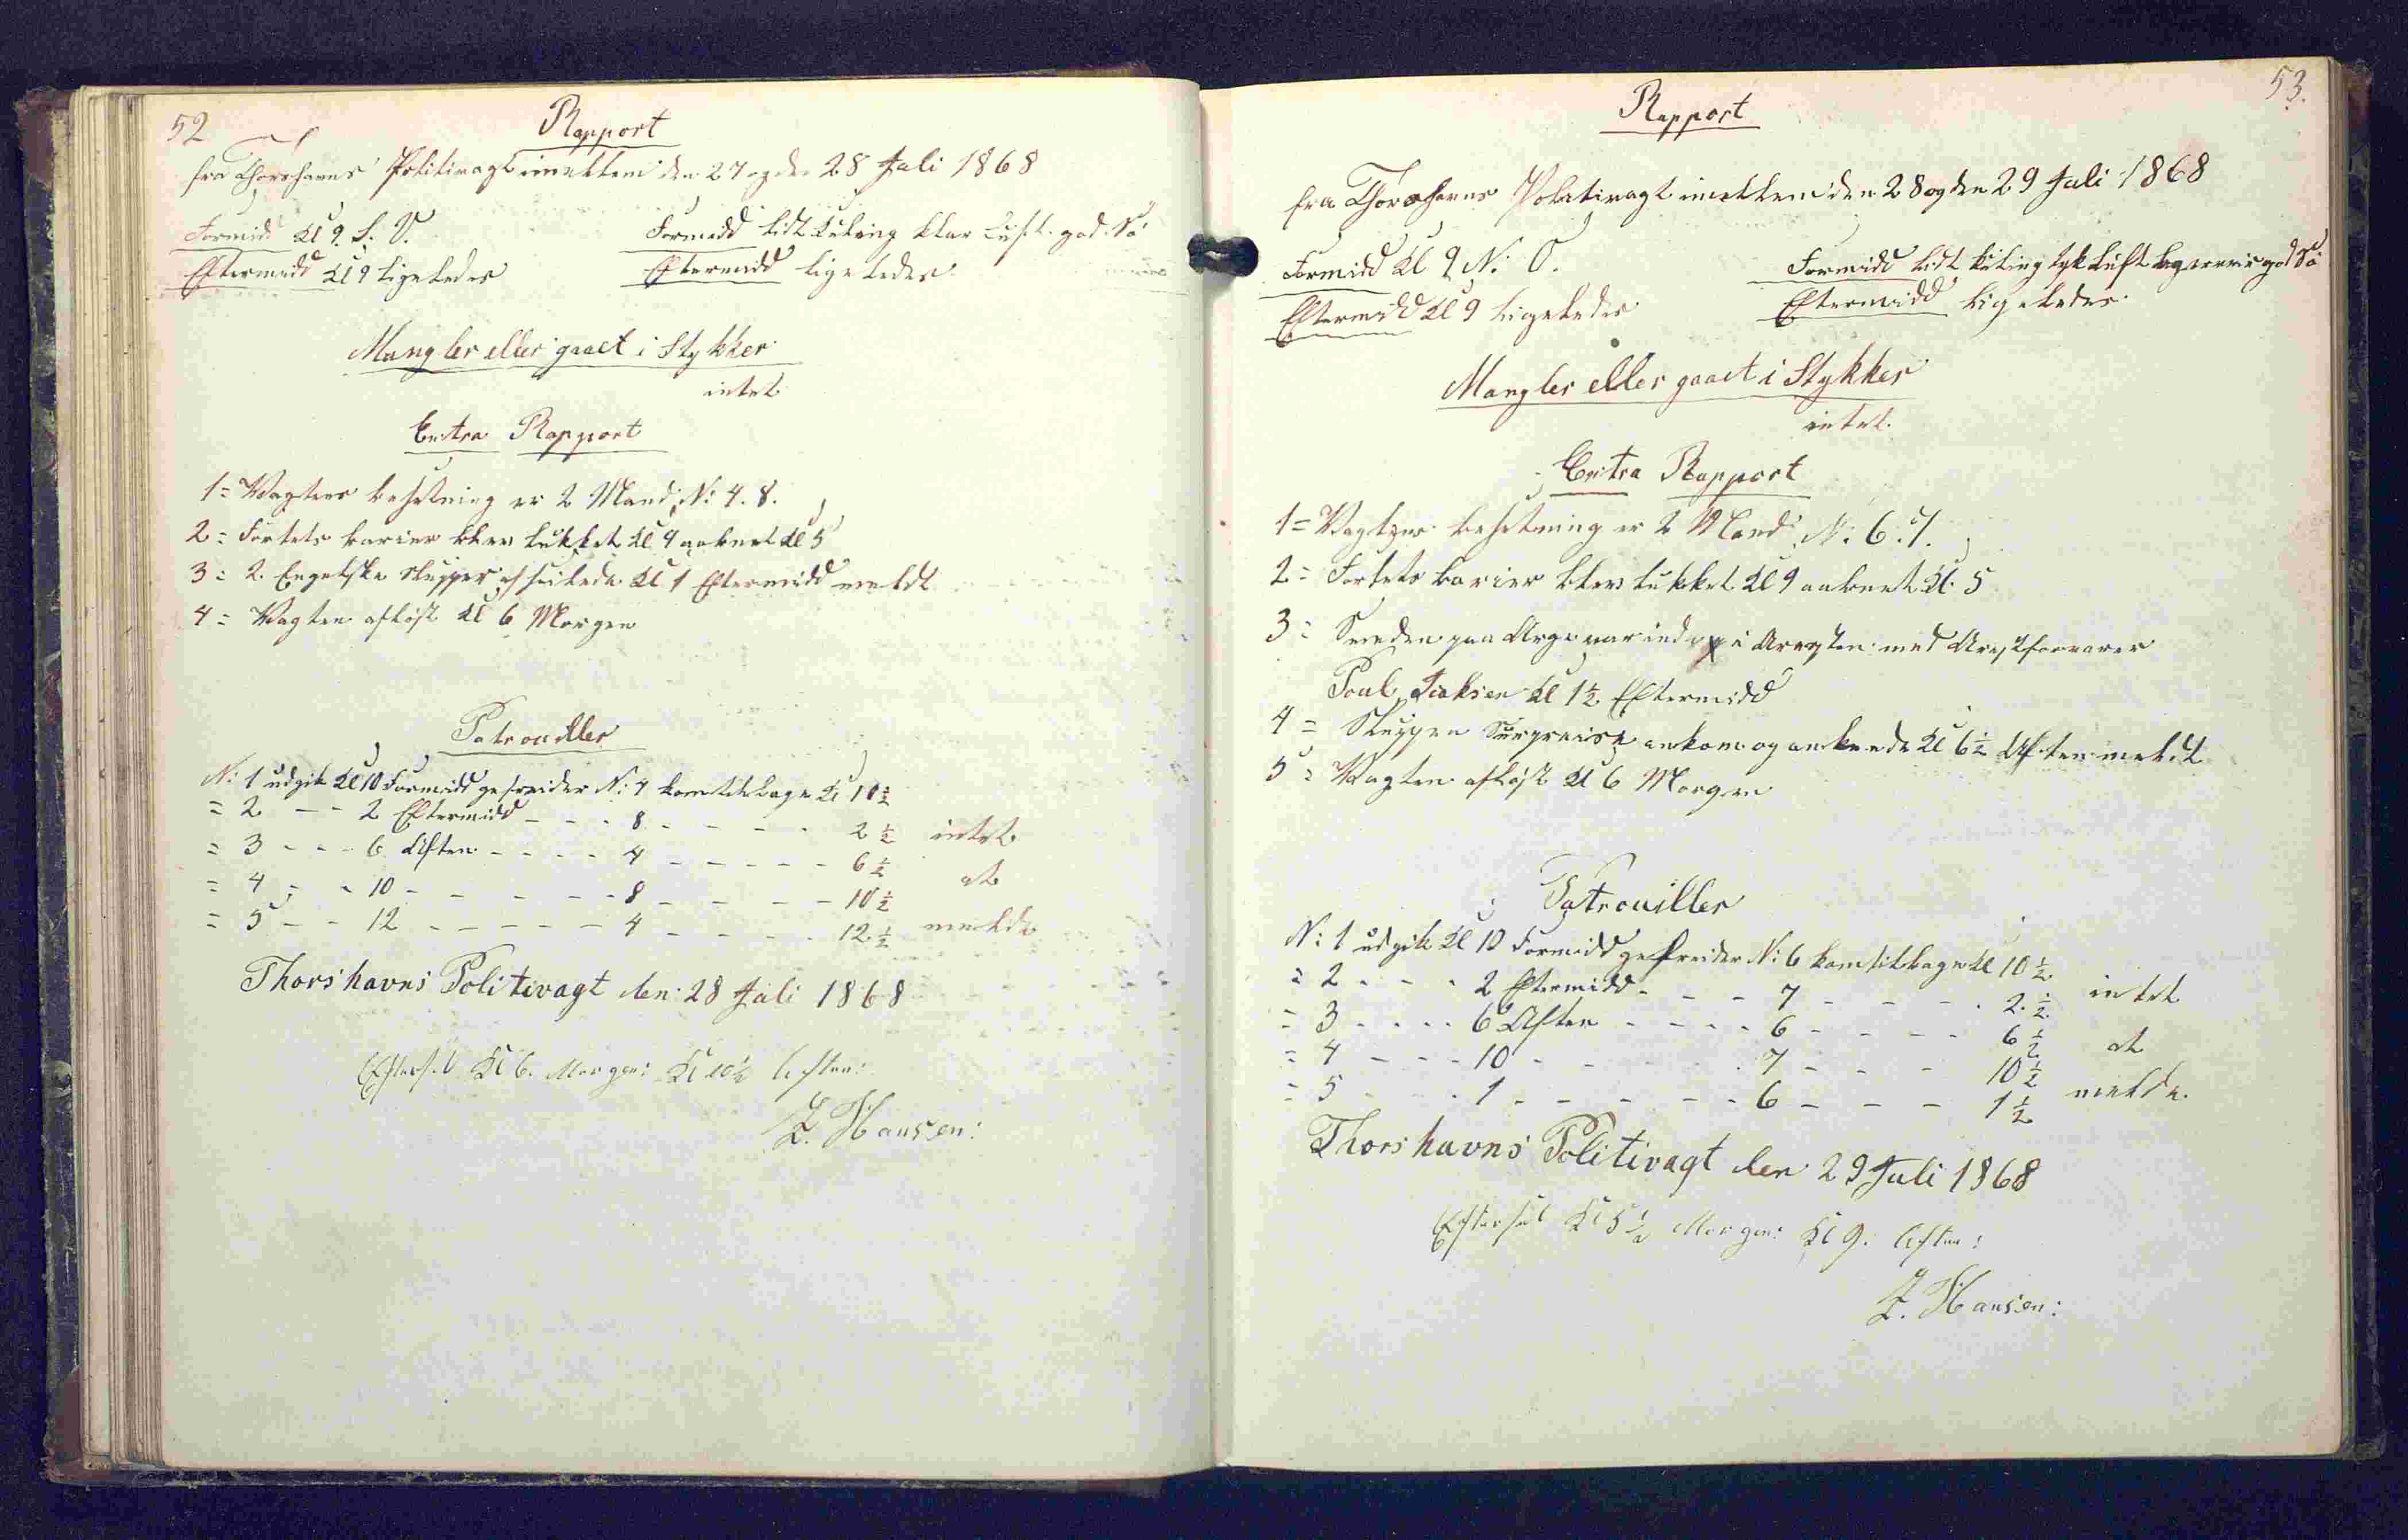 52
Rapport
fra Thorshavns Politivagt imellem den 27 og den 28 Juli 1868
Formid. Kl 9. S: V.
Formidd lidt Kuling klar Luft. god Sö
Eftermidd Kl 9 ligeledes
Eftermidd ligeledes
Mangler eller gaaet i Stykker
intet
Extra Rapport
1= Vagtens besetning er 2 Mand N: 4. 8.
2= Fortets barier blev lukket Kl 9 aabnet Kl 5
3= 2 Engelske Slupper afseilede Kl 1 Eftermidd meldt
4= Vagten aflöst Kl 6 Morgen
Patrouiller
N: 1 udgik Kl 10 Formidd gefreider N: 4 kom tilbage Kl 10 ½
= 2 - - 2 Eftermidd - - - 8 - - - - 2 ½ intet
= 3 - - - 6 Aften - - - - 4 - - - - - 6 ½
= 4 - - 10 - - - - - 8 - - - - 10 ½ at
= 5 - - 12 - - - - - 4 - - - - 12 ½ melde
Thorshavns Politivagt den 28 Juli 1868
Eftersét Kl 6. Morgen: Kl 10½ Aften:
Z. Hansen:
53.
Rapport
fra Thorshavns Politivagt imellem den 28 og den 29 Juli 1868
Formidd Kl 9 N: O.
Formidd lidt Kuling tyk Luft god Sö
Eftermidd Kl 9 ligeledes
Eftermidd ligeledes
Mangler eller gaaet i Stykker
intet.
Extra Rapport
1= Vagtens besetning er 2 Mand N: 6. 7.
2= Fortets barier blev lukket Kl 9 aabnet Kl. 5
3= Smeden paa Arge var inde i Arresten med Arestforvarer
Poul Joksen Kl 1½ Eftermidd
4= Sluppen Surpraise ankom og ankrede Kl 6½ Aften meldt
5= Vagten aflöst Kl 6 Morgen
Patrouiller
N: 1 udgik Kl 10 Formidd gefreider N: 6 kom tilbage Kl 10 ½
= 2 - - - 2 Eftermidd - - - 7 - - - - 2 ½ intet
= 3 - - - - 6 Aften - - - - 6 - - - - 6 ½
= 4 - - - 10 - - - - 7 - - - 10 ½ at
= 5 - - - 1 - - - - - 6 - - - 1 ½ melde
Thorshavns Politivagt den 29 Juli 1868
Eftersét Kl 5½ Morgen: Kl 9. Aften:
Z. Hansen: